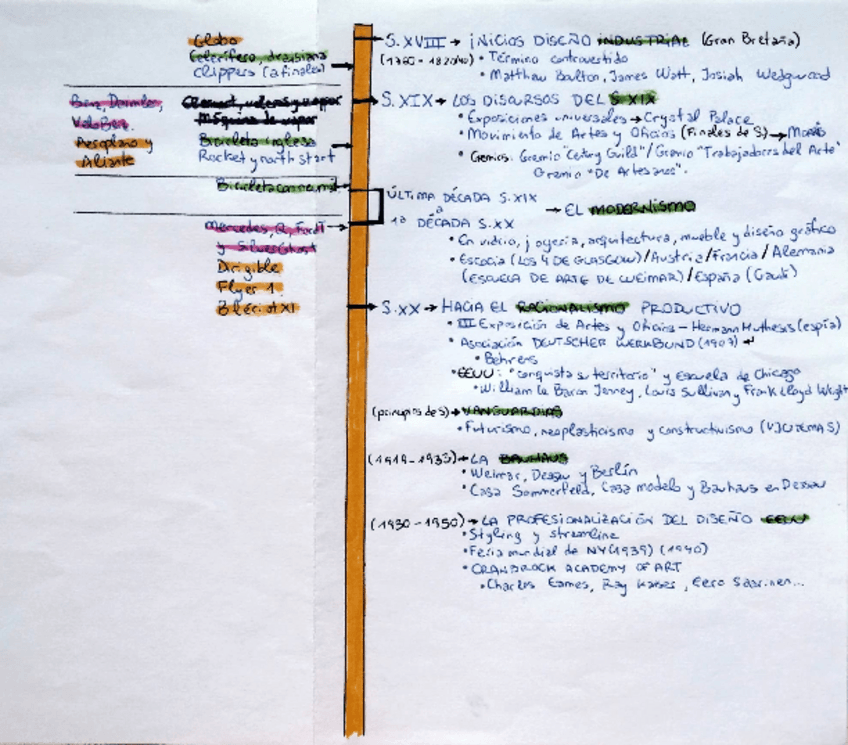 Globo
Celerífero, draisiana
Clippers (a finales)
Benz, Daimler,
Velo Benz.
Aeroplano y
Aliante
máquina de vapor
Bicicleta inglesa
Rocket y north start
Bicicleta con neumát.
Mercedes, R, Ford T
y Silver Ghost
Dirigible
Flyer 1.
Blériot XI
S. XVIII → INICIOS DISEÑO INDUSTRIAL (Gran Bretaña)
• Término controvertido
• Matthau Boulton, James Watt, Josiah Wedgwood
S. XIX → LOS DISCURSOS DEL S. XIX
• Exposiciones universales → Crystal Palace
• Movimiento de Artes y Oficios (Finales de S) →
• Gremios: Gremio "Century Guild" / Gremio "Trabajadores del Arte"
Gremio "De Artesanos".
ÚLTIMA DÉCADA S. XIX
→ EL MODERNISMO
1ª DÉCADA S. XX
• En vidrio, joyería, arquitectura, mueble y diseño gráfico
• Escocia (LOS 4 DE GLASGOW) / Austria / Francia / Alemania
(ESCUELA DE ARTE DE WEIMAR) / España (Gaudí)
S. XX → HACIA EL RACIONALISMO PRODUCTIVO
• III Exposición de Artes y Oficios - Hermann Muthesis (espía)
• Asociación DEUTSCHER WERKBUND (1907)
• Behrens
• EEUU: "conquista su territorio" y Escuela de Chicago
• William Le Baron Jenney, Louis Sullivan y Frank Lloyd Wright
(principios de S) → VANGUARDIAS
• Futurismo, neoplasticismo y constructivismo (VJCUTEMAS)
(1919-1933) → LA BAUHAUS
• Weimar, Dessau y Berlín
• Casa Sommerfeld, Casa modelo y Bauhaus en Dessau
(1930-1950) → LA PROFESIONALIZACIÓN DEL DISEÑO EEUU
• Styling y streamline
• Feria mundial de NY (1939) (1940)
• CRANBROCK ACADEMY OF ART
• Charles Eames, Ray Kaiser, Eero Saarinen...